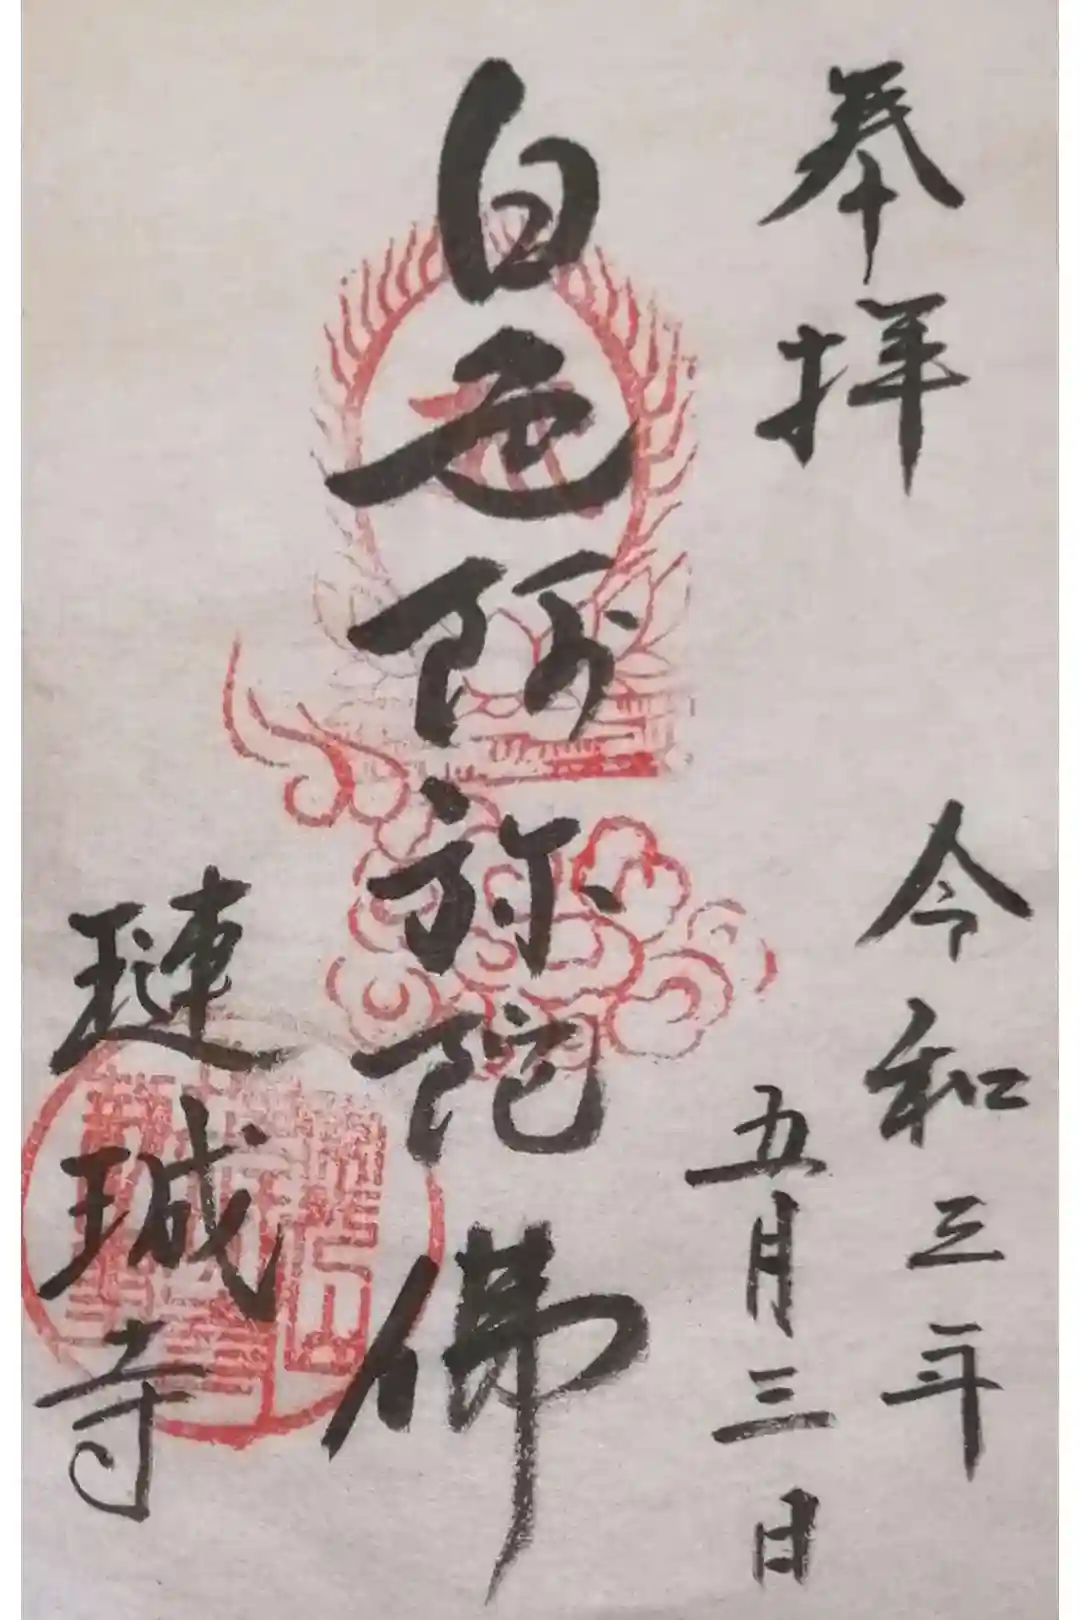 奉拝
令和三年
五月三日
白色阿弥陀佛
璉珹寺